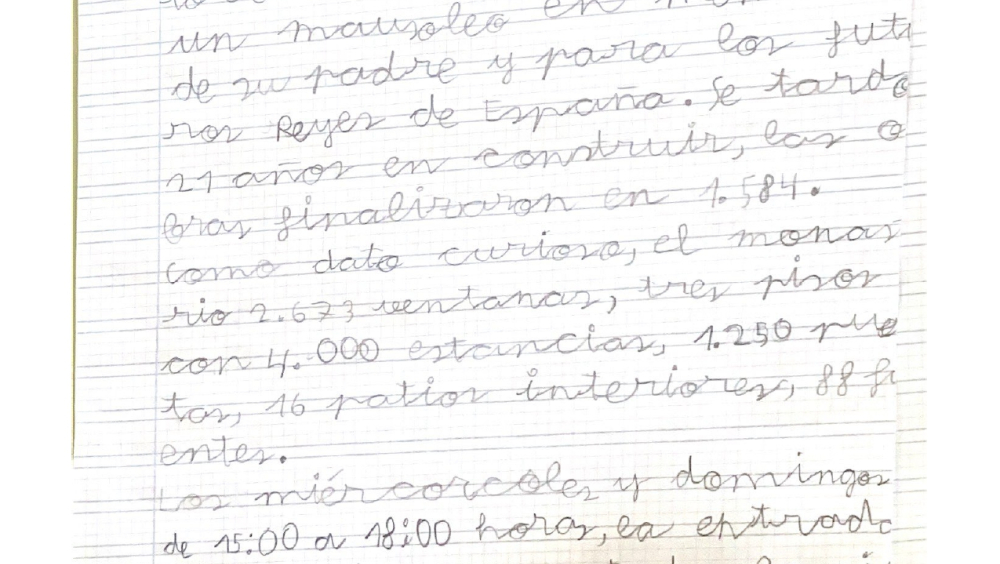 un mausoleo en
de su padre y para los futu
ros Reyes de España. Se tardó
21 años en construir, las o
bras finalizaron en 1.584.
como dato curioso, el monas
rio 2.673 ventanas, tres pisos
con 4.000 estancias, 1.250 pue
tas, 16 patios interiores, 88 fu
entes.
Los miércorcoles y domingos
de 15:00 a 18:00 horas, la entrada